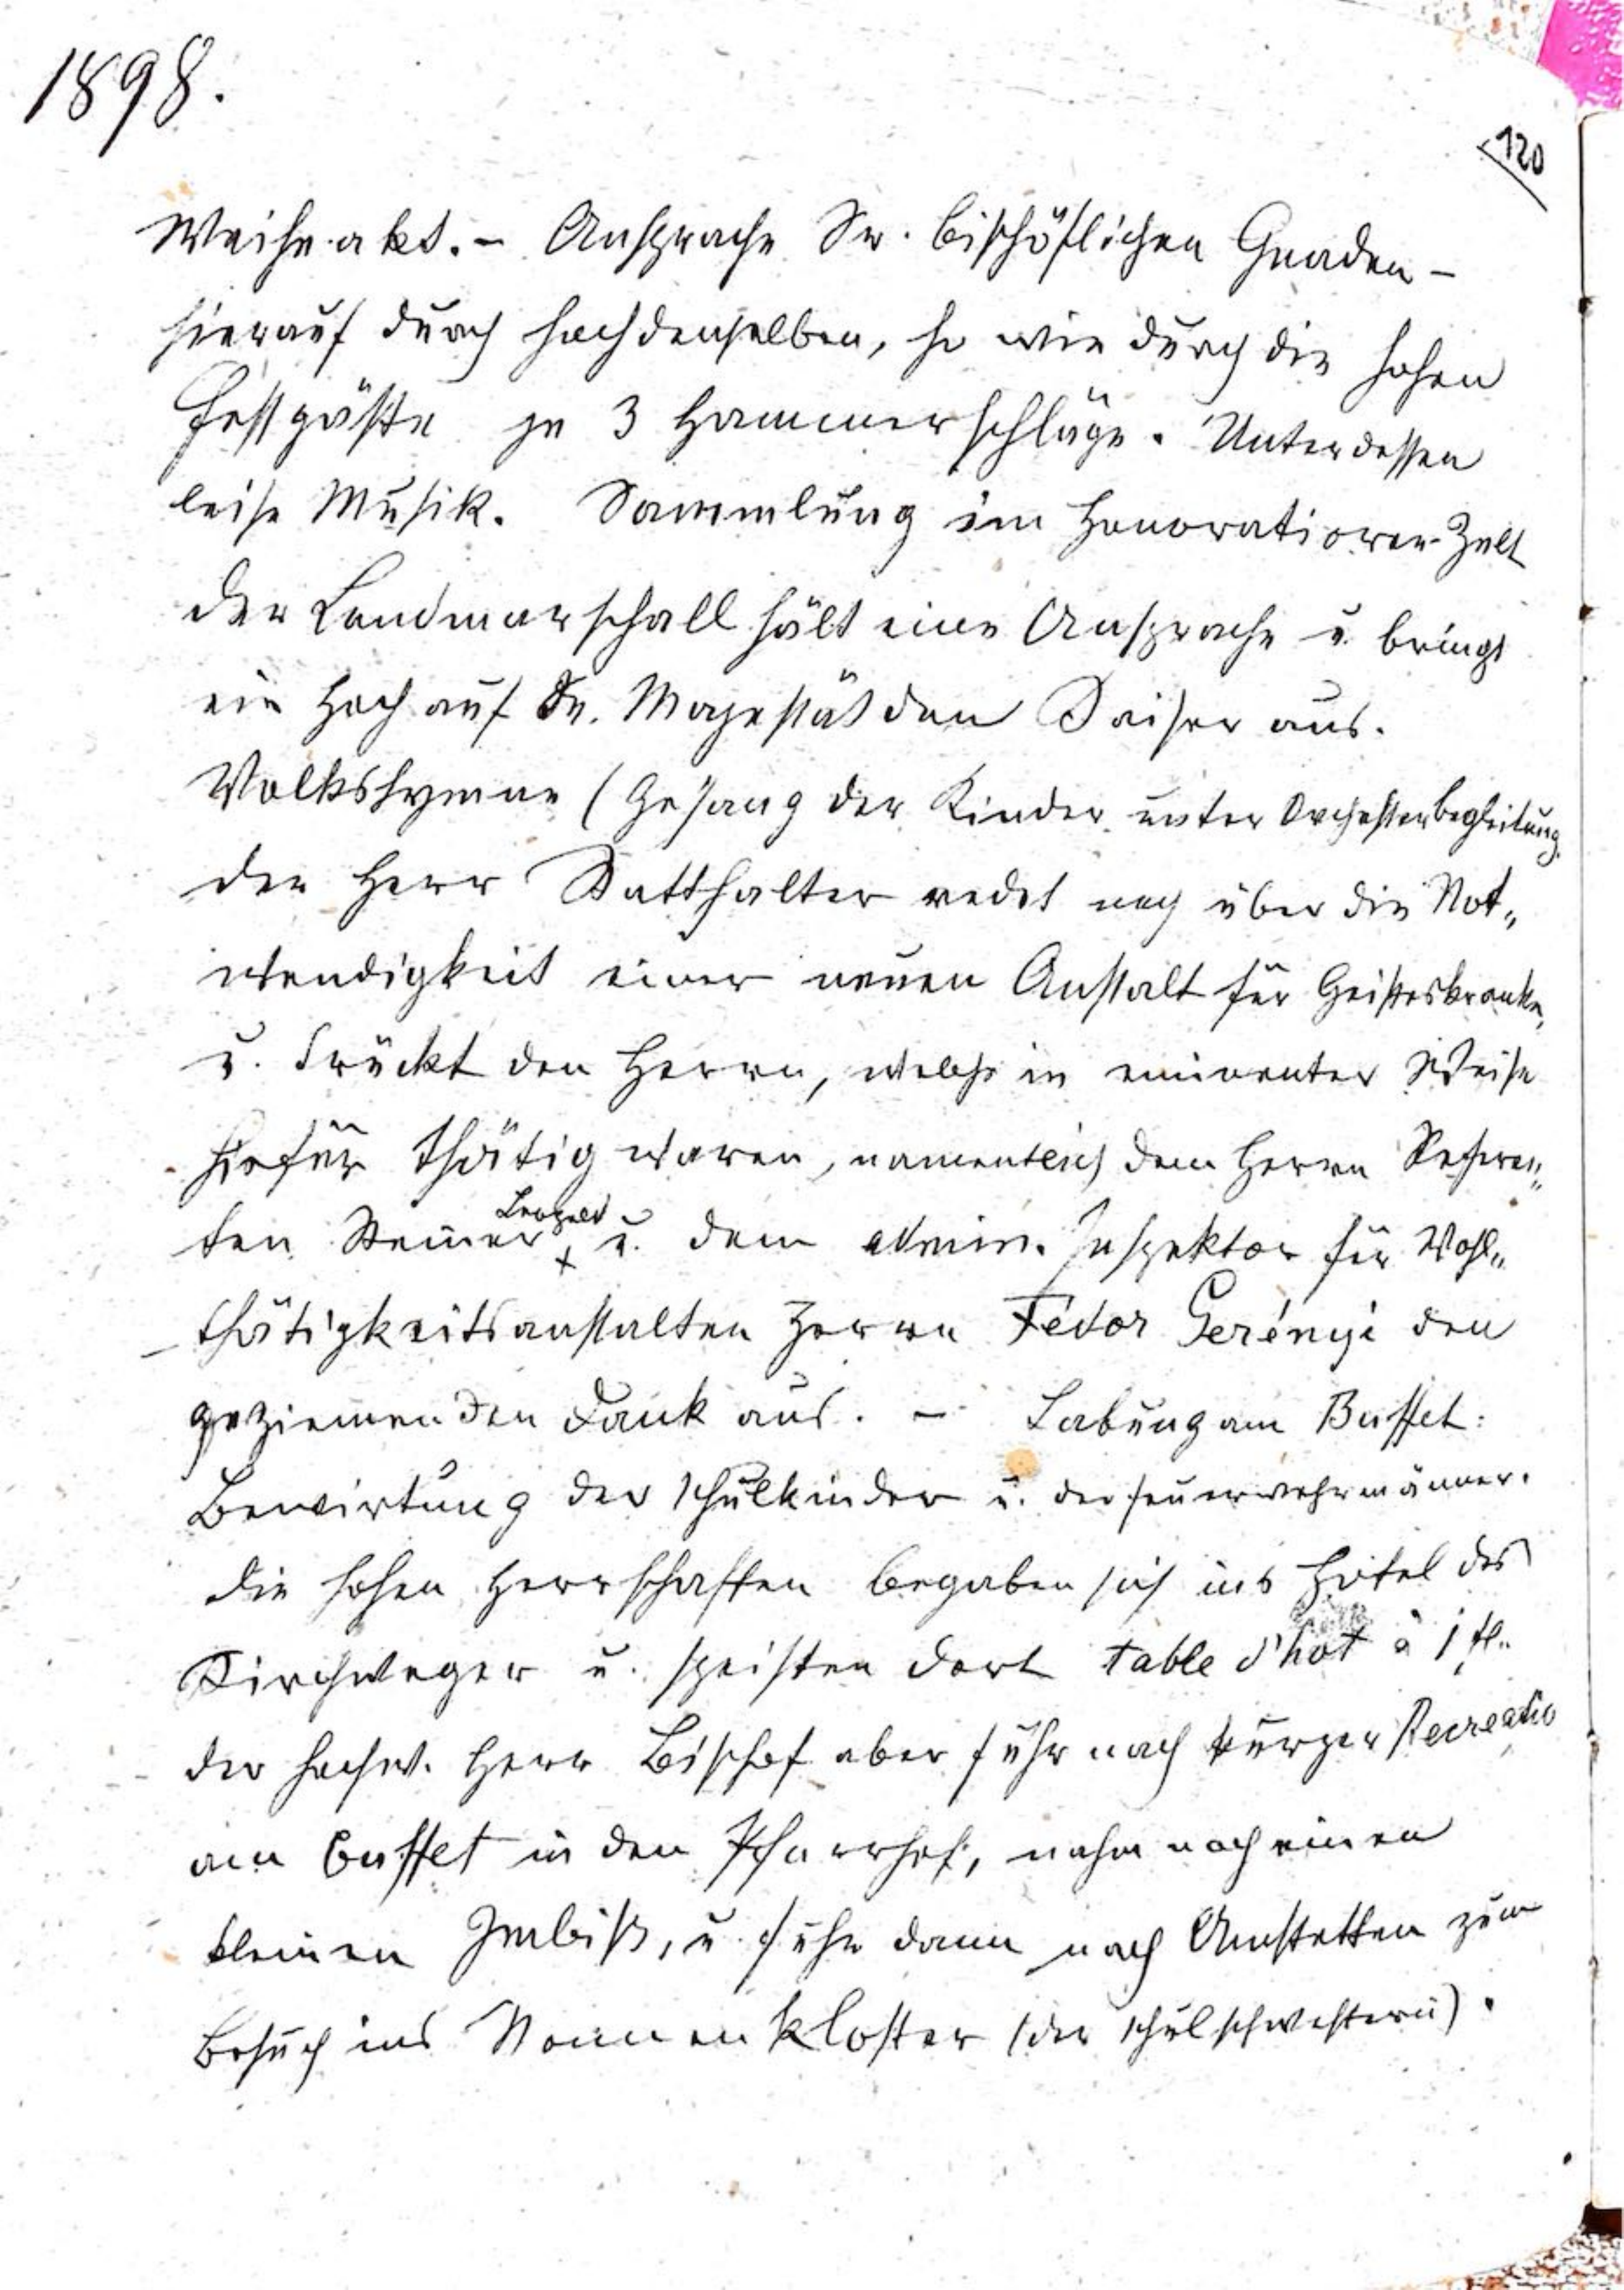 1898.
120
Weiheakt. – Ansprache Sr. bischöflichen Gnaden –
hierauf durch hochdenselben, so wie durch die hohen
Festgäste je 3 Hammerschläge. Unterdessen
leise Musik. Sammlung im Honoratioren-Zelt
der Landmarschall hält eine Ansprache u. bringt
ein Hoch auf Se. Majestät den Kaiser aus.
Volkshymne (Gesang der Kinder unter Orchesterbegleitung.
der Herr Statthalter redet noch über die Not„
wendigkeit einer neuen Anstalt für Geisteskranke,
u. drückt den Herrn, welche in eminenter Weise
hiefür thätig waren, namentlich dem Herrn Referen„
Leopold
ten Steiner x u. dem admin. Inspektor für Wohl„
thätigkeitsanstalten Herrn Fedor Gerényi den
geziemenden Dank aus. – Labung am Buffet:
Bewirtung der Schulkinder u. der Feuerwehrmänner.
die hohen Herrschaften begaben sich ins Hotel des
Kirchweger u. speisten dort table d'hot à 1 fl.
der hochw. Herr Bischof aber fuhr nach kurzer Recreatio
am Buffet in den Pfarrhof, nahm noch einen
kleinen Imbiß, u. fuhr dann nach Amstetten zum
Besuch ins Nonnenkloster (der Schulschwestern).